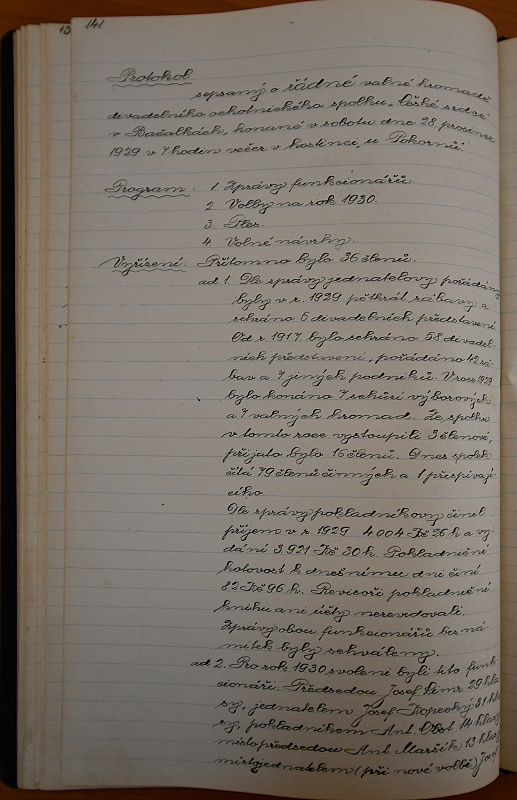 13 141.
Protokol
sepsaný o řádné valné hromadě
divadelního ochotnického spolku „České srdce"
v Bačalkách, konané v sobotu dne 28. prosince
1929 v 7 hodin večer v hostinci „u Pokorných".
Program: 1. Zprávy funkcionářů.
2. Volby na rok 1930.
3. Ples.
4. Volné návrhy.
Vyřízení: Přítomno bylo 36 členů.
ad 1. Dle zprávy jednatelovy pořádány
byly v r. 1929 pětkrát zábavy a
sehráno 5 divadelních představení
Od r. 1917 bylo sehráno 58 divadel-
ních představení, pořádáno 42 zá-
bav a 7 jiných podniků. V roce 1929
bylo konáno 7 schůzí výborových
a 7 valných hromad. Ze spolku
v tomto roce vystoupili 3 členové,
přijato bylo 15 členů. Dnes spolek
čítá 79 členů činných a 1 přispívají-
cího.
Dle zprávy pokladníkovy činil
příjem v r. 1929 4.004 Kč 26 h a vy-
dání 3.921 Kč 30 h. Pokladniční
hotovost k dnešnímu dni činí
82 Kč 96 h. Revisoři pokladniční
knihu ani účty nerevidovali.
Zprávy obou funkcionářů bez ná-
mitek byly schváleny.
ad 2. Pro rok 1930 zvoleni byli tito funk-
cionáři: Předsedou Josef 29 hla-
sy, jednatelem Josef Kopecký 31 hla-
sy, pokladníkem Ant. 14 hlasy
místopředsedou Ant. Maršík 13 hlasy
místojednatelem (při nové volbě) Josef